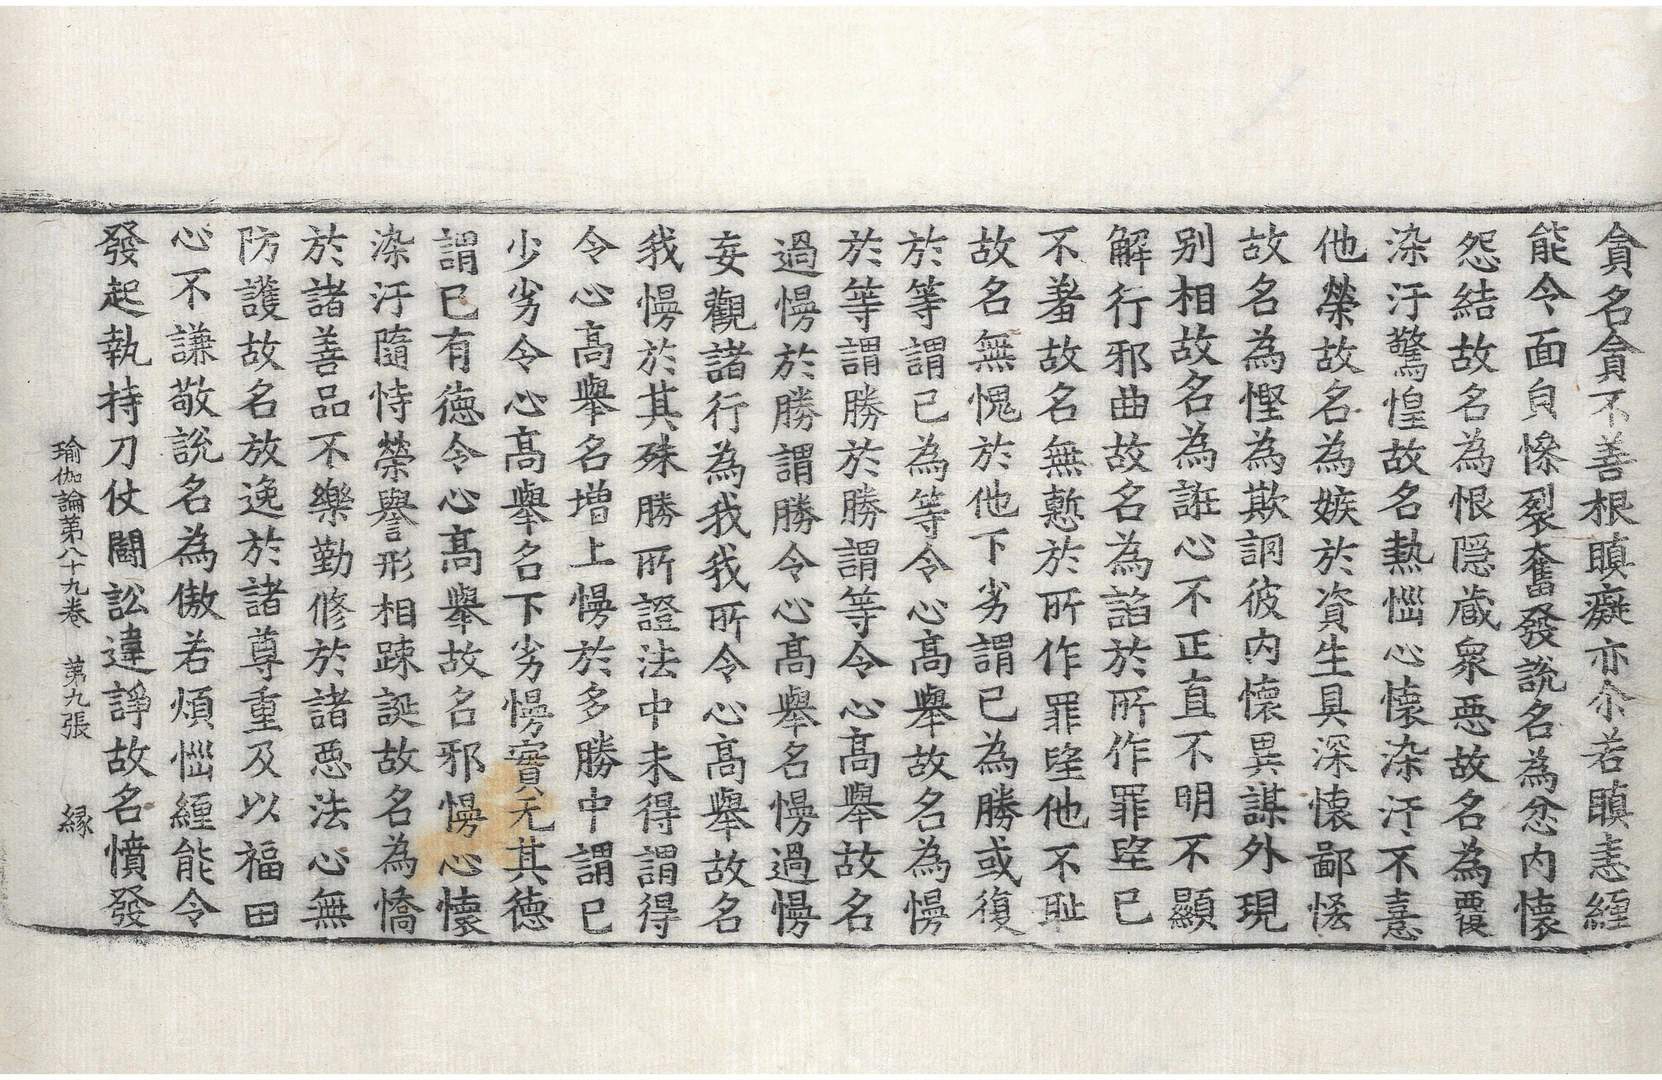 貪名貪不善根瞋癡亦尒若瞋恚纏
能令面貟慘裂奮發說名為忿內懷
怨結故名為恨隱蔵衆惡故名為覆
染汙驚惶故名熱惱心懷染汙不憙
他榮故名為嫉於資生具深懷鄙悋
故名為慳為欺詗彼內懷異謀外現
别相故名為誑心不正直不明不顯
解行邪曲故名為諂於所作罪望已
不羞故名無慙於所作罪望他不恥
故名無愧於他下劣謂已為勝或復
於等謂已為等令心髙舉故名為慢
於等謂勝於勝謂等令心髙舉故名
過慢於勝謂勝令心髙舉名慢過慢
妄觀諸行為我我所令心髙舉故名
我慢於其殊勝所證法中未得謂得
令心髙舉名增上慢於多勝中謂已
少劣令心髙舉名下劣慢實无其德
謂已有德令心髙舉故名邪慢心懷
染汙隨恃榮譽形相踈誕故名為憍
於諸善品不樂勤修於諸惡法心無
防護故名放逸於諸尊重及以福田
心不謙敬說名為傲若煩惱纏能令
發起執持刀仗鬪訟違諍故名憤發
瑜伽論第八十九卷　第九張　縁